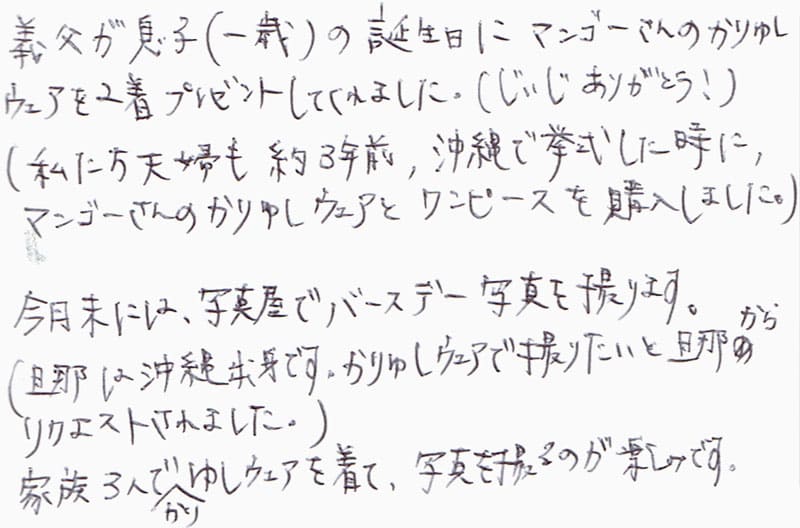 義父が息子(一歳)の誕生日にマンゴーさんのかりゆし
ウェアを2着プレゼントしてくれました。(じぃじありがとう!)
(私たち夫婦も約3年前,沖縄で挙式した時に,
マンゴーさんのかりゆしウェアとワンピースを購入しました。)
今月末には、写真屋でバースデー写真を撮ります。
(旦那は沖縄出身です。かりゆしウェアで撮りたいと旦那から
リクエストされました。)
家族3人でかりゆしウェアを着て、写真を撮るのが楽しみです。